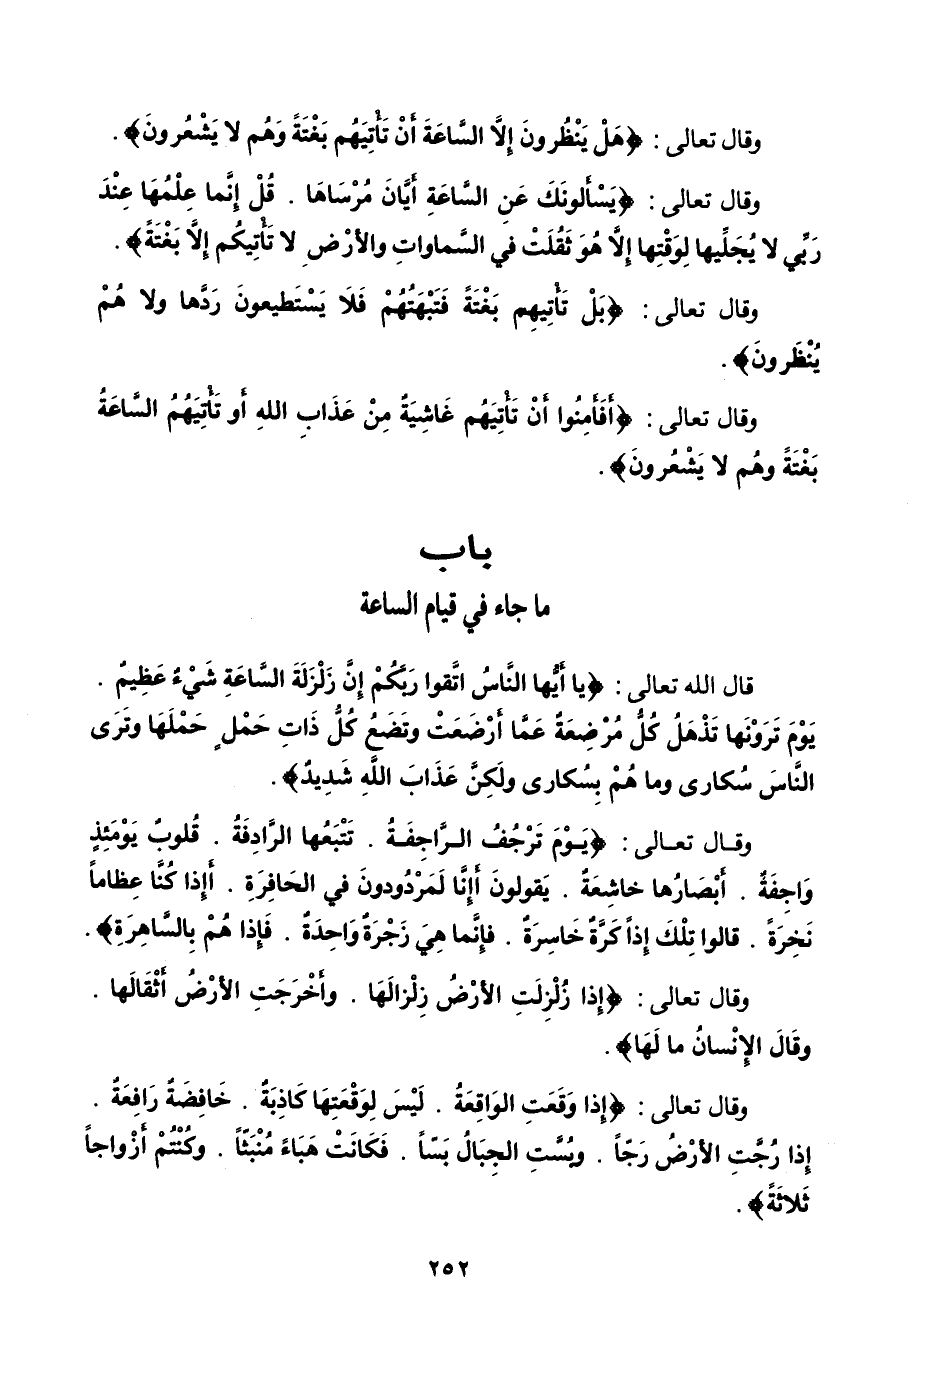 وقال تعالى : ﴿هَلْ يَنْظُرونَ إلَّا السَّاعَةَ أَنْ تَأْتِيَهُم بَغْتَةً وَهُم لا يَشْعُرونَ﴾ .
وقال تعالى : ﴿يَسْأَلونَكَ عَنِ السَّاعَةِ أيَّانَ مُرْسَاهَا . قُلْ إنَّما عِلْمُهَا عِنْدَ
رَبِّي لا يُجَلِّيها لِوَقْتِها إلَّا هُوَ ثَقُلَتْ في السَّماواتِ والأرْضِ لا تَأْتِيكُم إلَّا بَغْتَةً﴾ .
وقال تعالى : ﴿بَلْ تَأْتِيهِم بَغْتَةً فَتَبْهَتُهُمْ فَلَا يَسْتَطيعونَ رَدَّها ولا هُمْ
يُنْظَرونَ﴾ .
وقال تعالى : ﴿أَفَأَمِنُوا أنْ تَأْتِيَهُم غَاشِيَةٌ مِنْ عَذَابِ اللهِ أو تَأْتِيَهُمُ السَّاعَةُ
بَغْتَةً وهُم لا يَشْعُرونَ﴾ .
باب
ما جاء في قيام الساعة
قال الله تعالى : ﴿يا أيُّها النَّاسُ اتَّقوا رَبَّكُمْ إنَّ زَلْزَلَةَ السَّاعَةِ شَيْءٌ عَظِيمٌ .
يَوْمَ تَرَوْنَها تَذْهَلُ كُلُّ مُرْضِعَةٌ عَمَّا أَرْضَعَتْ وتَضَعُ كُلُّ ذَاتِ حَمْلٍ حَمْلَهَا وتَرَى
النَّاسَ سُكارى وما هُمْ بِسُكارى ولَكِنَّ عَذَابَ اللَّهِ شَدِيدٌ﴾ .
وقـال تعـالى : ﴿يَـوْمَ تَرْجُفُ الـرَّاجِفَـةُ . تَتْبَعُها الرَّادِفَةُ . قُلوبٌ يَوْمَئِذٍ
وَاجِفَةٌ . أَبْصَارُها خاشِعَةٌ . يَقولونَ أإنَّا لَمَرْدُودونَ في الحَافِرَةِ . أإذا كُنَّا عِظاماً
نَخِرَةً . قالوا تِلْكَ إذاً كَرَّةٌ خَاسِرَةٌ . فإنَّما هِيَ زَجْرَةٌ وَاحِدَةٌ . فَإذا هُمْ بِالسَّاهِرَةِ﴾ .
وقال تعالى : ﴿إذا زُلْزِلَتِ الأرْضُ زِلْزالَهَا . وأخْرَجَتِ الأرْضُ أثْقَالَها .
وقَالَ الإنْسانُ ما لَهَا﴾ .
وقال تعالى : ﴿إذا وَقَعَتِ الوَاقِعَةُ . لَيْسَ لِوَقْعَتِهَا كَاذِبَةٌ . خَافِضَةٌ رَافِعَةٌ .
إذا رُجَّتِ الأرْضُ رَجّاً . وبُسَّتِ الجِبَالُ بَسّاً . فَكَانَتْ هَبَاءً مُنْبَثّاً . وكُنْتُمْ أزْواجاً
ثَلاثَةً﴾ .
٢٥٢